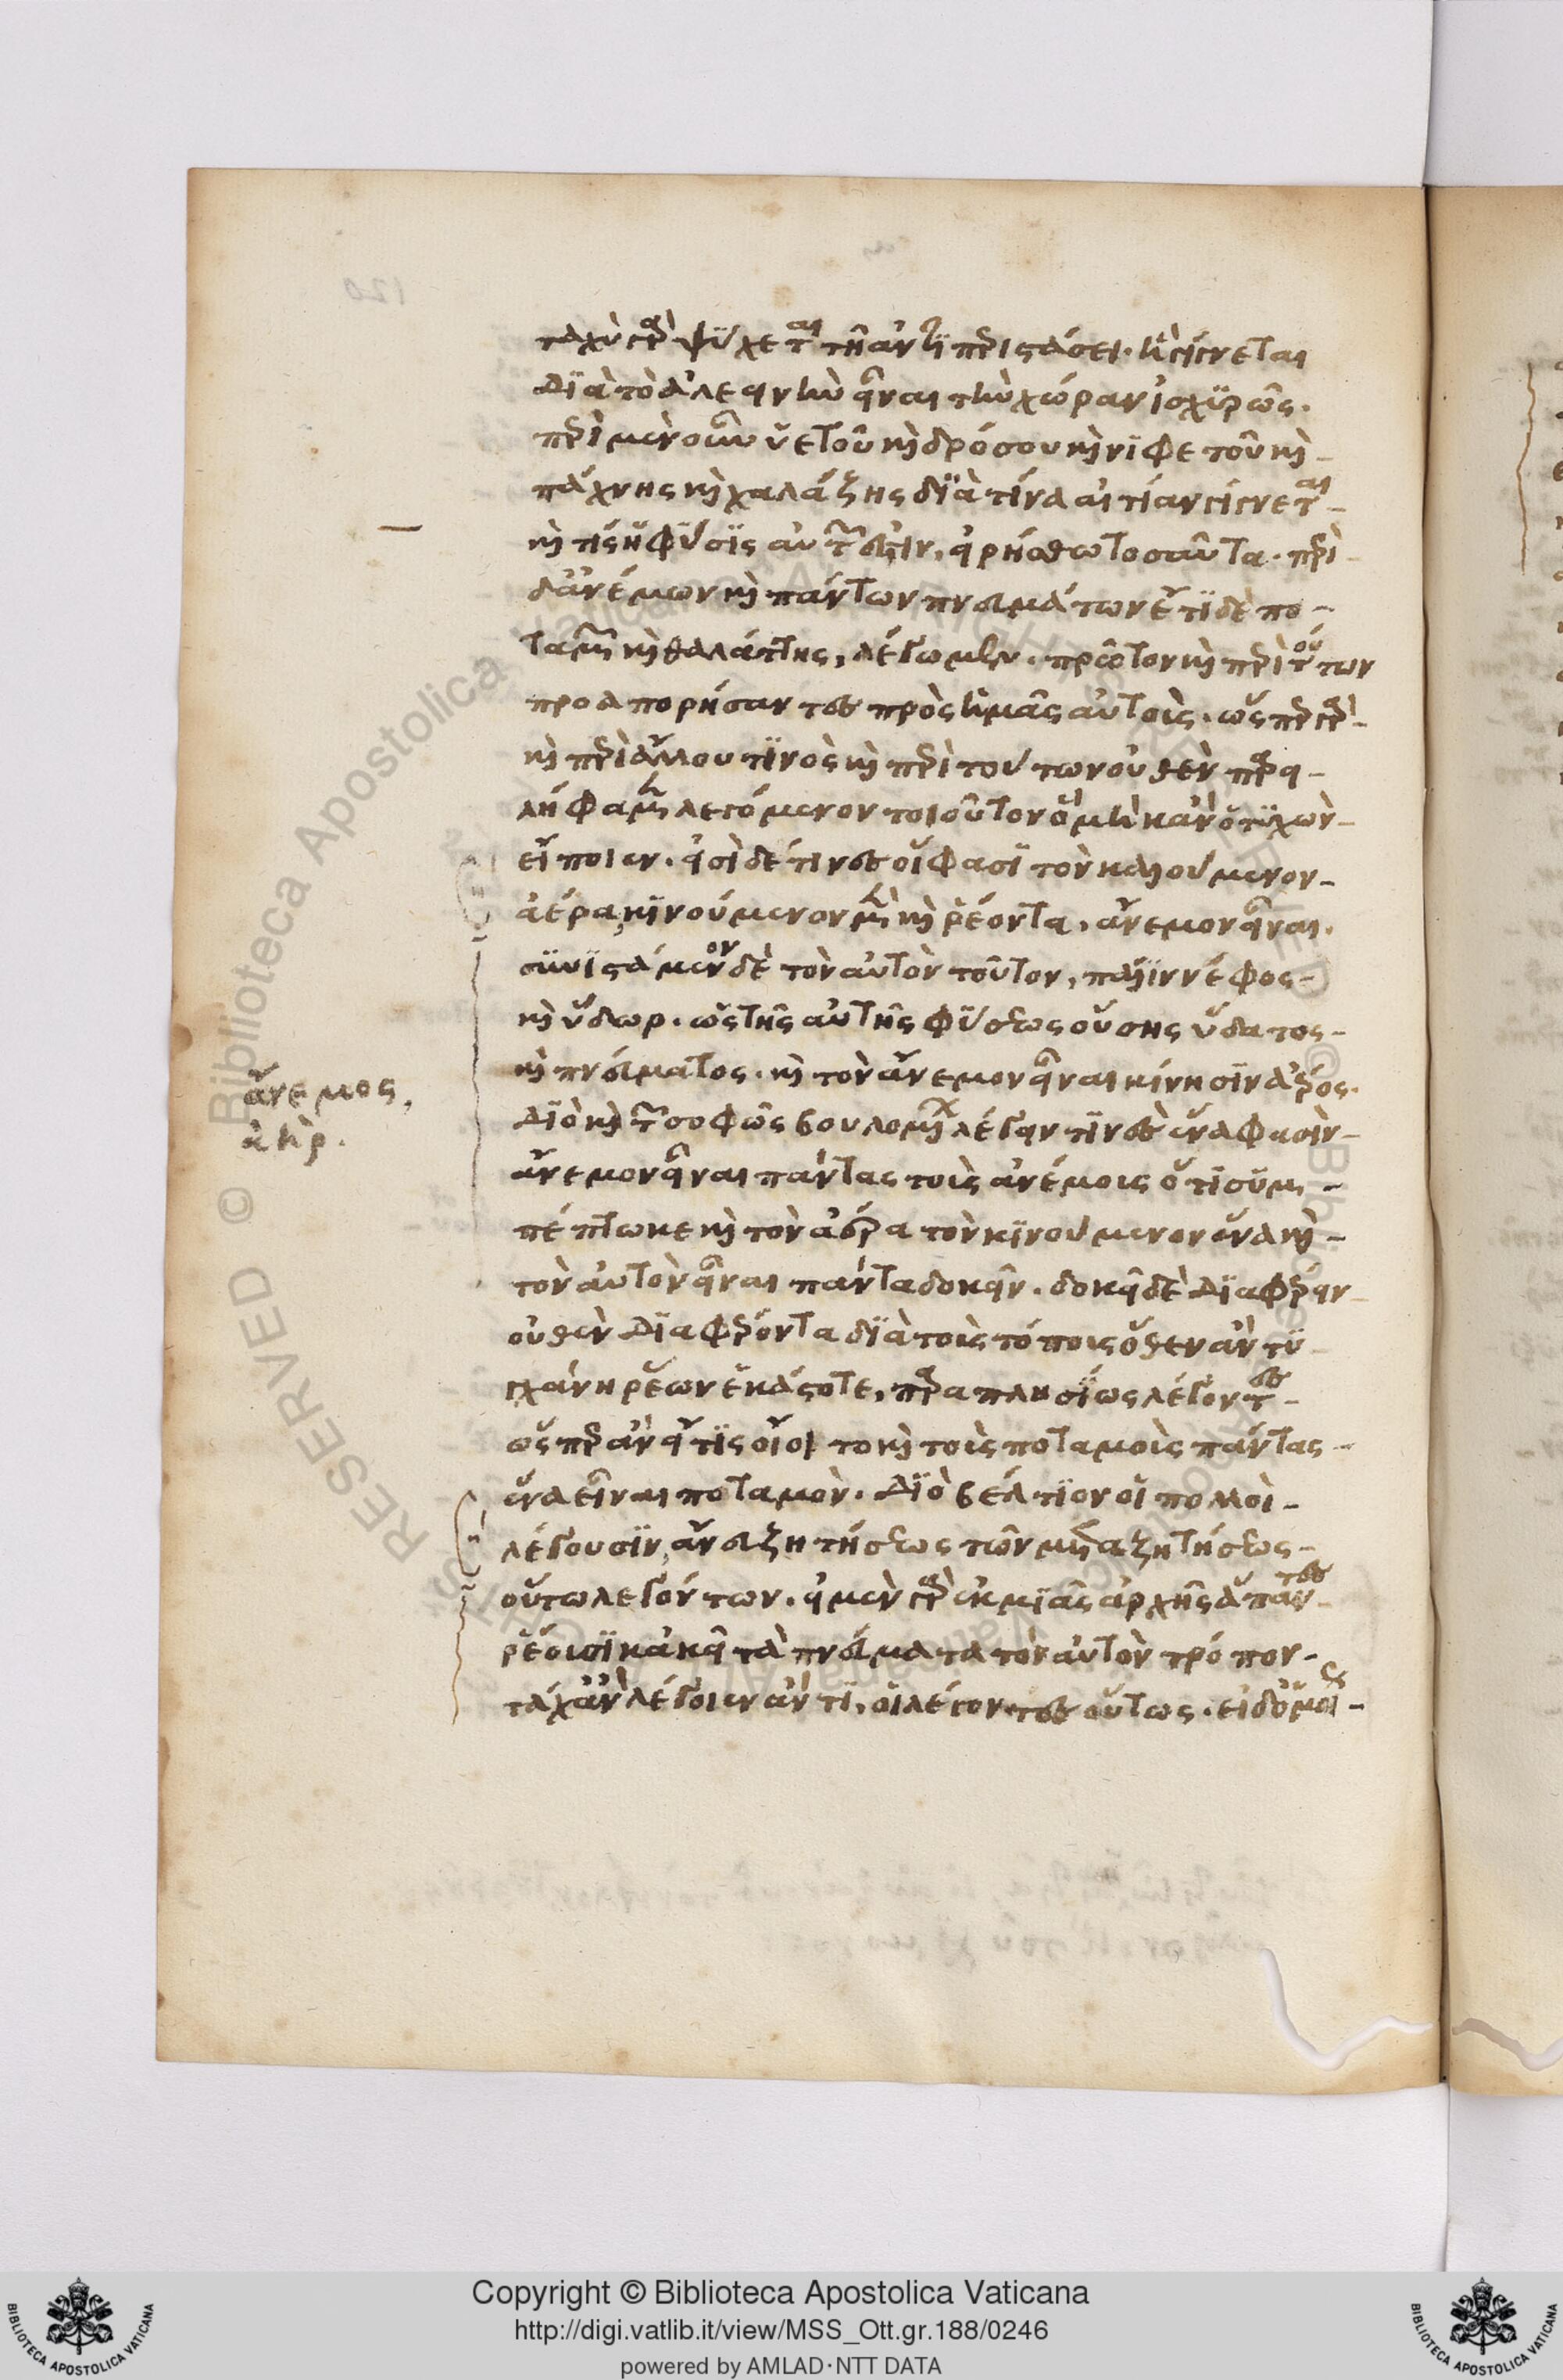 ταχὺ γὰρ ψύχεται τῇ ἀντιπεριστάσει. ἣ γίγνεται
διὰ τὸ ἀλεεινὴν εἶναι τὴν χώραν ἰσχυρῶς.
περὶ μὲν οὖν ὑετοῦ καὶ δρόσου καὶ νιφετοῦ καὶ
πάχνης καὶ χαλάζης διὰ τίνα αἰτίαν γίγνεται
καὶ τίς ἡ φύσις αὐτῶν ἐστιν, εἰρήσθω τοσαῦτα. περὶ
δ' ἀνέμων καὶ πάντων πνευμάτων ἔτι δὲ πο-
ταμῶν καὶ θαλάττης, λέγωμεν. πρῶτον καὶ περὶ τούτων
προαπορήσαντες πρὸς ἡμᾶς αὐτούς. ὥσπερ γὰρ
καὶ περὶ ἄλλου τινὸς καὶ περὶ τούτων οὐθὲν παρει-
λήφαμεν λεγόμενον τοιοῦτον ὃ μὴ κἂν ὁ τυχὼν
εἴποιεν. εἰσὶ δέ τινες οἵ φασι τὸν καλούμενον
ἀέρα, κινούμενον μὲν καὶ ῥέοντα, ἄνεμον εἶναι.
συνιστάμενον δὲ τὸν αὐτὸν τοῦτον, πάλιν νέφος
καὶ ὕδωρ. ὡς τῆς αὐτῆς φύσεως οὔσης ὕδατος
καὶ πνεύματος. καὶ τὸν ἄνεμον εἶναι κίνησιν ἀέρος.
διὸ καὶ τῶν σοφῶς βουλομένων λέγειν τινὲς ἕνα φασὶν
ἄνεμον εἶναι πάντας τοὺς ἀνέμους ὅτι συμ-
πέπτωκε καὶ τὸν ἀέρα τὸν κινούμενον ἕνα καὶ
τὸν αὐτὸν εἶναι πάντα δοκεῖν. δοκεῖ δὲ διαφέρειν
οὐθὲν διαφέροντα διὰ τοὺς τόπους ὅθεν ἂν τυ
γχάνη ῥέων ἑκάστοτε, παραπλησίως λέγοντες
ὥσπερ ἂν εἴ τις οἴοιτο καὶ τοὺς ποταμοὺς πάντας
ἕνα εἶναι ποταμόν. διὸ βέλτιον οἱ πολλοὶ
λέγουσιν, ἄνευ ζητήσεως τῶν μετὰ ζητήσεως
οὕτω λεγόντων. εἰ μὲν γὰρ ἐκ μιᾶς ἀρχῆς ἅπαντες
ῥέουσι κἀκεῖ τὰ πνεύματα τὸν αὐτὸν τρόπον
τάχ' ἂν λέγοιεν ἄν τι, οἱ λέγοντες οὕτως. εἰ δ' ὁμοίως
ἄνεμος,
ἀήρ.
Copyright © Biblioteca Apostolica Vaticana
http://digi.vatlib.it/view/MSS_Ott.gr.188/0246
powered by AMLAD·NTT DATA
BIBLIOTECA APOSTOLICA VATICANA
BIBLIOTECA APOSTOLICA VATICANA